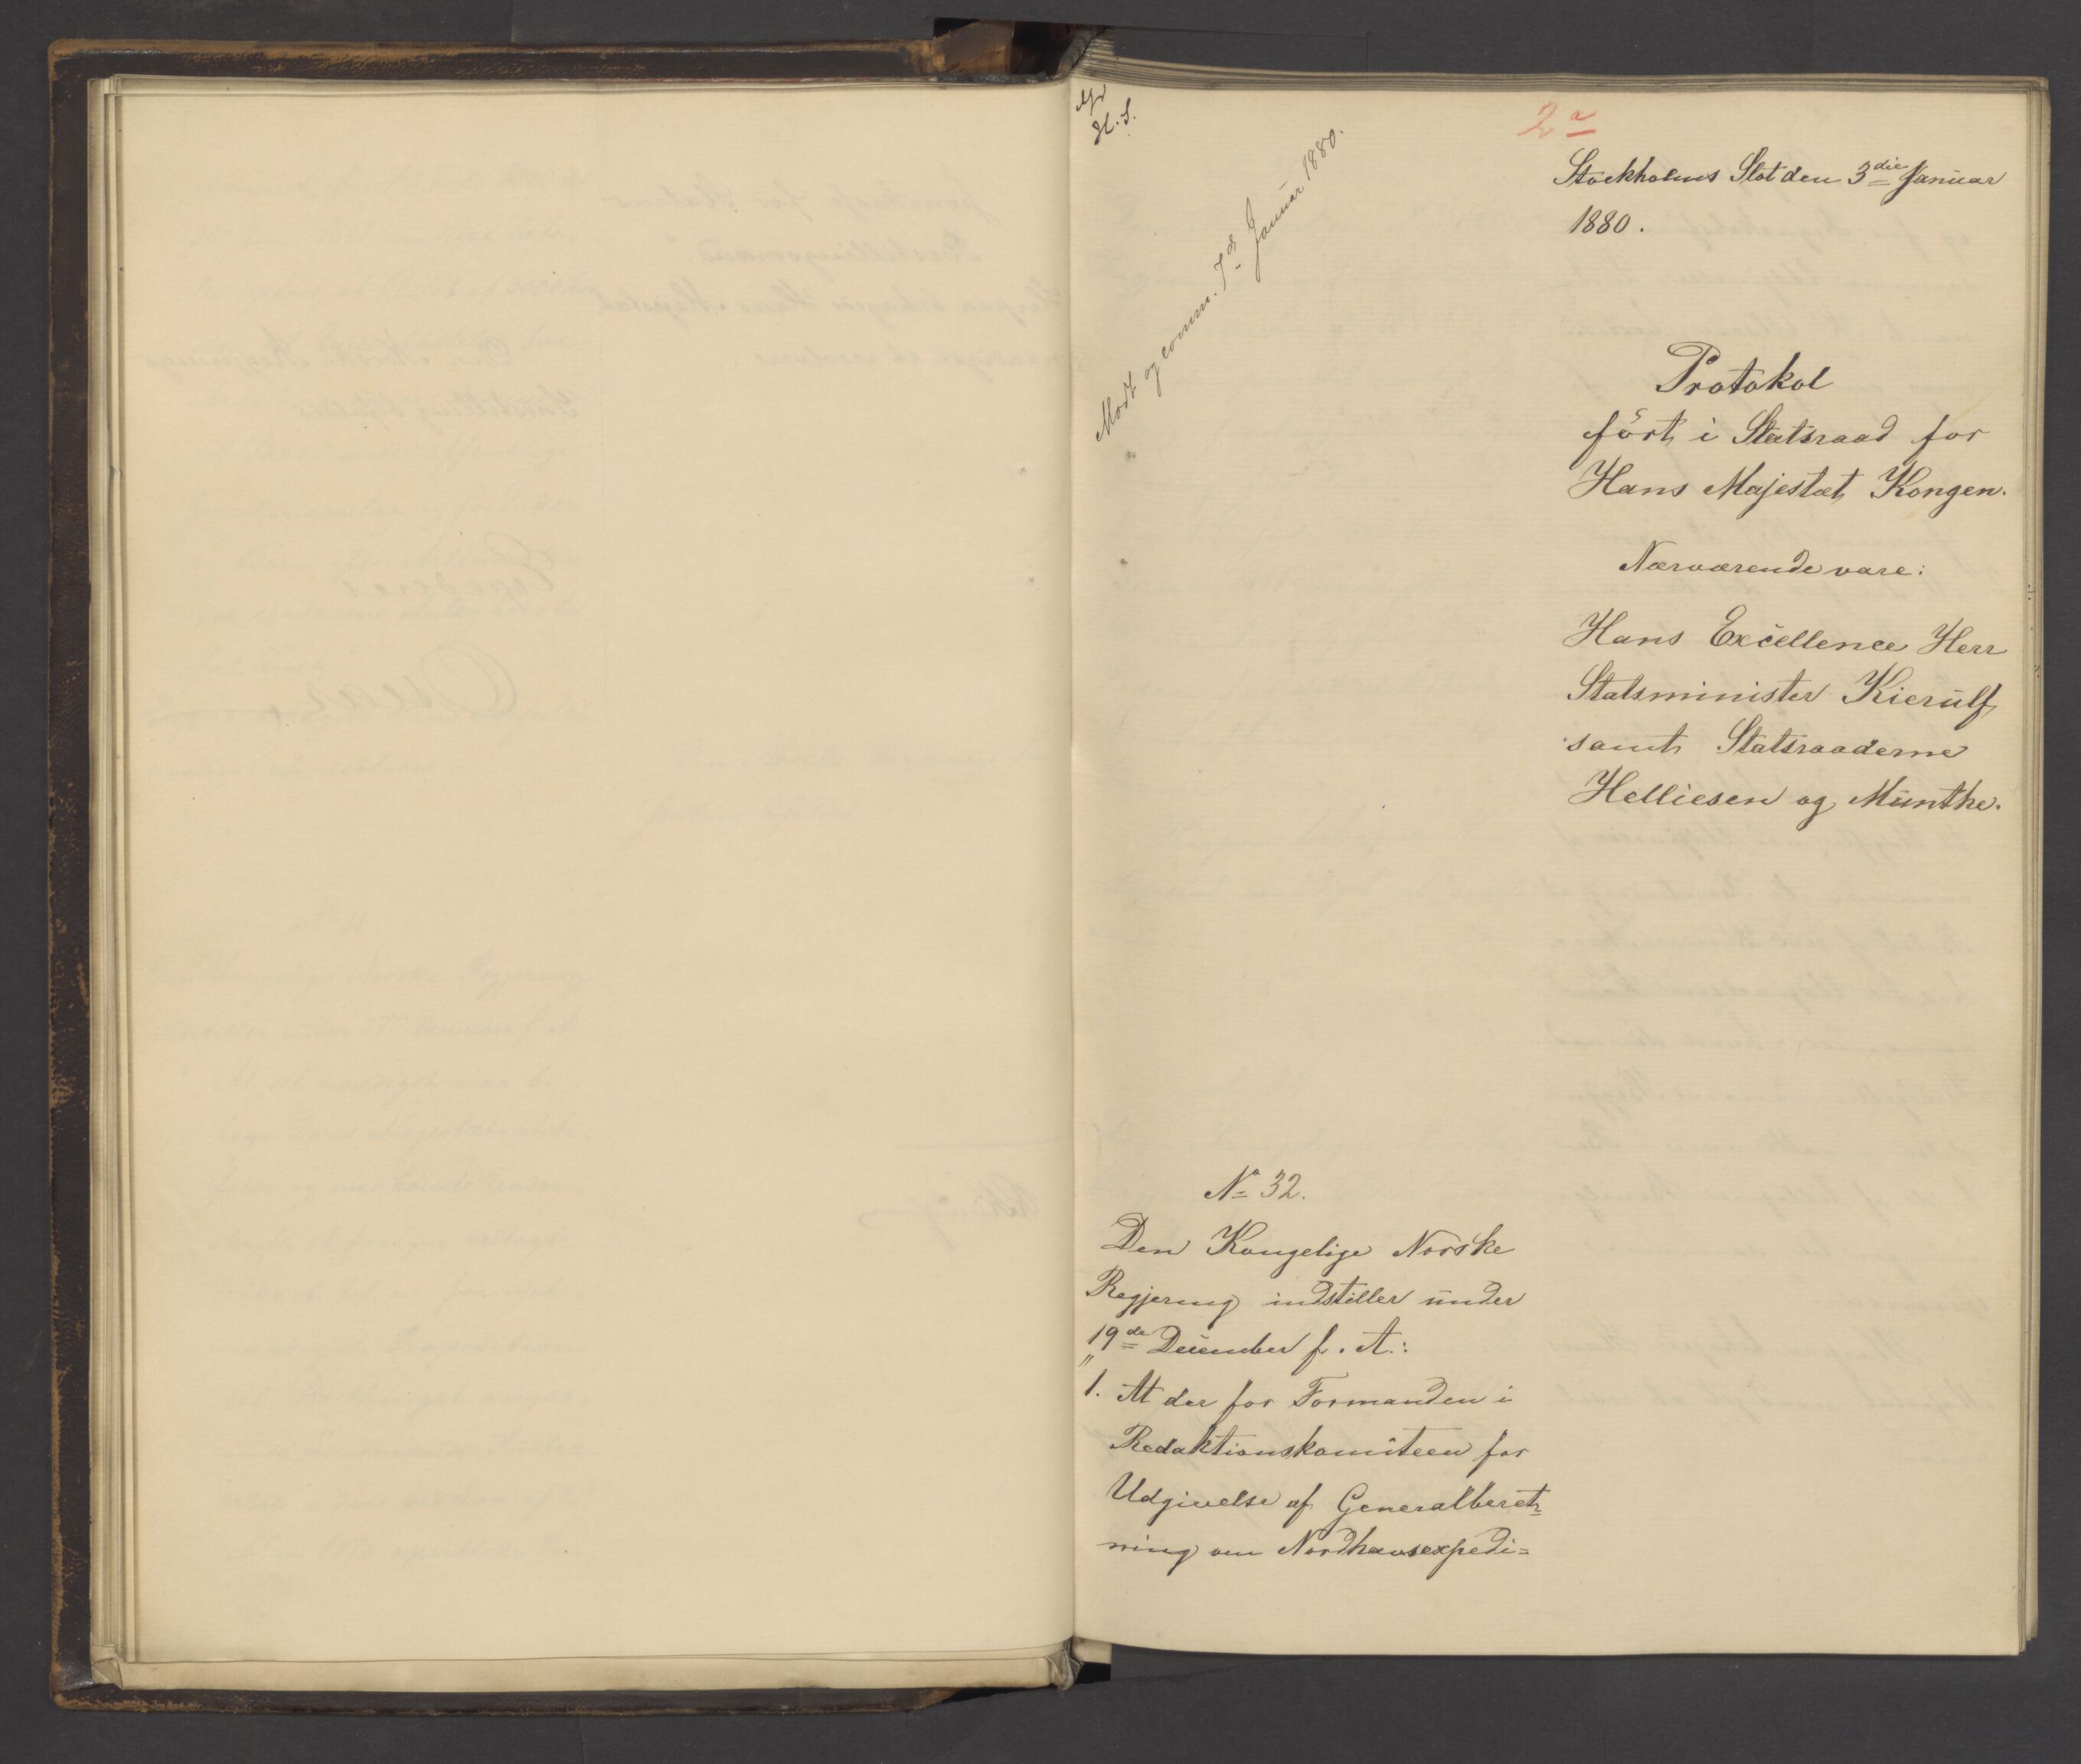 H. S.
Modt og comm. 7d Januar 1880.
2
Stockholms Slot den 3die Januar
1880.
Protokol
ført i Statsraad for
Hans Majestæt Kongen.
Nærværende vare:
Hans Excellence Herr
Statsminister Kierulf
samt Statsraaderne
Helliesen og Munthe.
No 32.
Den Kongelige Norske
Regjering indstiller under
19de December f. A.:
"1. At der for Formanden i
Redaktionskomiteen for
Udgivelse af Generalberet=
ning om Nordhavsexpedi=